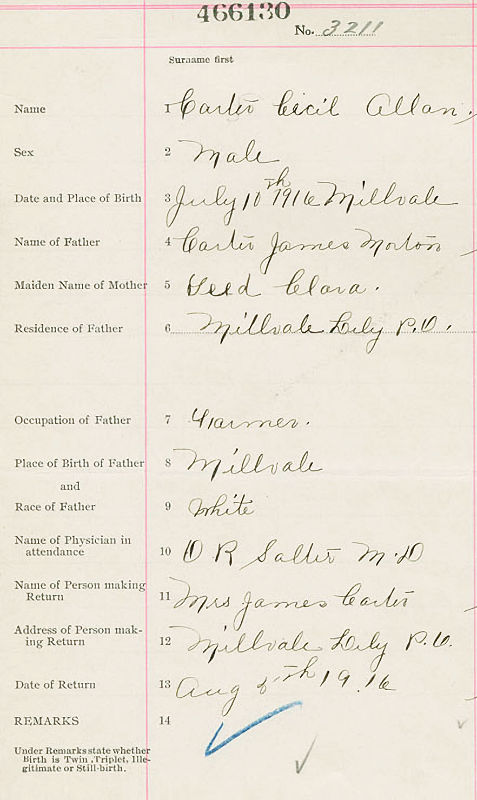 466130
No. 3211
Surname first
Name 1 Carter Cecil Allan.
Sex 2 Male
Date and Place of Birth 3 July 10th 1916 Millvale
Name of Father 4 Carter James Morton
Maiden Name of Mother 5 Clara.
Residence of Father 6 Millvale Lily P.O.
Occupation of Father 7 Farmer.
Place of Birth of Father 8 Millvale
and
Race of Father 9 White
Name of Physician in
attendance 10 O R Salter M.D
Name of Person making
Return 11 Mrs James Carter
Address of Person mak-
ing Return 12 Millvale Lily P.O.
Date of Return 13 Aug th 1916
REMARKS 14
Under Remarks state whether
Birth is Twin, Triplet, Ille-
gitimate or Still-birth.